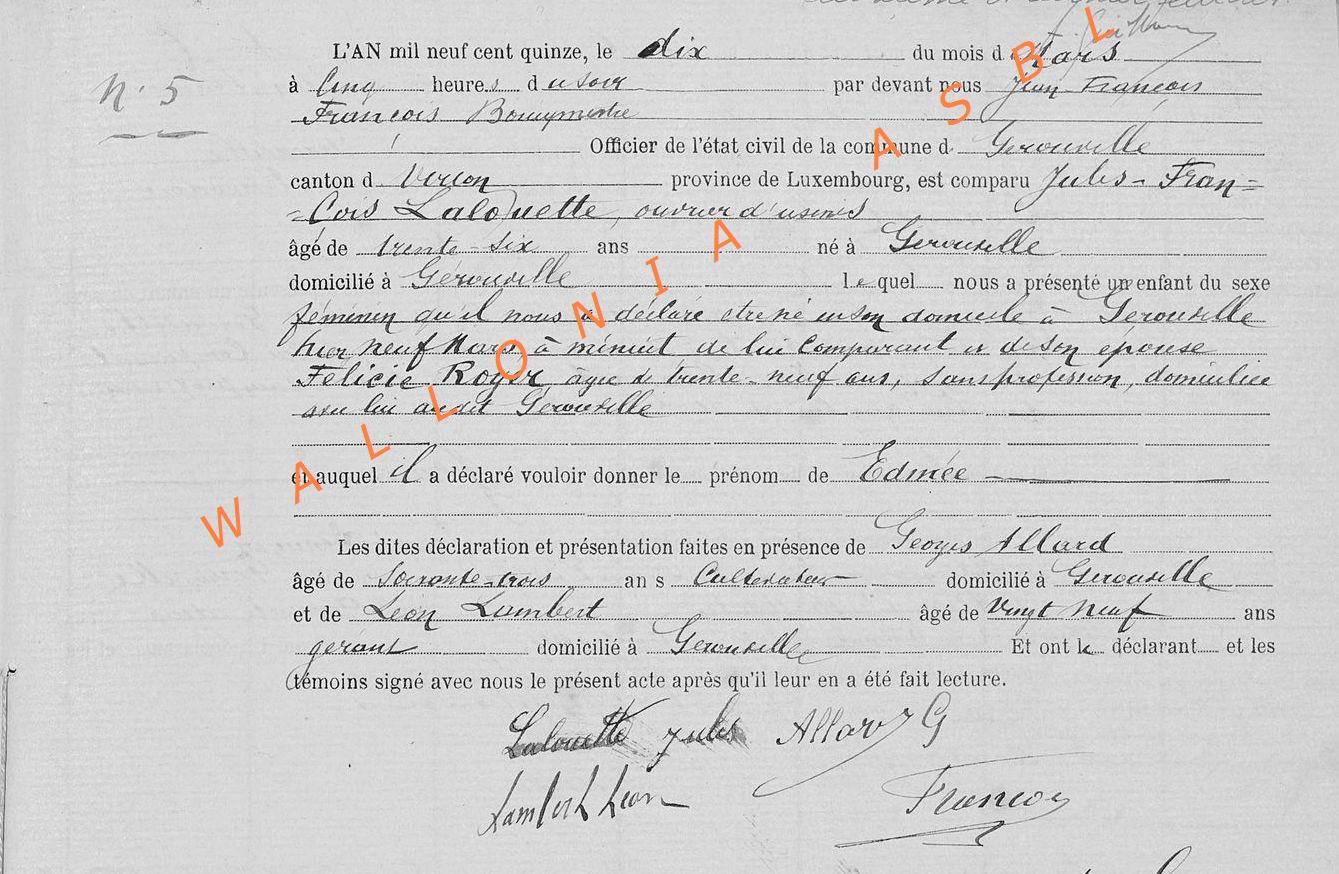 N. 5
L'AN mil neuf cent quinze, le dix du mois de Mars
à Cinq heures du soir par devant nous Jean François
François Bourgmestre
Officier de l'état civil de la commune d. Gerouville
canton d Virton province de Luxembourg, est comparu Jules-Fran=
=Cois Lalouette, ouvrier d'usines
âgé de trente-six ans né à Gerouville
domicilié à Gérouville lequel nous a présenté un enfant du sexe
féminin qu'il nous a déclaré être né en son domicile à Gerouville
hier neuf Mars, à minuit de lui Comparant et de son épouse
Félicie Roger âgée de trente-neuf ans, sans profession, domiciliée
avec lui audit Gerouville
et auquel il a déclaré vouloir donner le prénom de Edmée
Les dites déclaration et présentation faites en présence de Georges Allard
âgé de Soixante-trois ans Cultivateur domicilié à Gerouville
et de Léon Lambert âgé de Vingt neuf ans
gérant domicilié à Gerouville Et ont le déclarant et les
témoins signé avec nous le présent acte après qu'il leur en a été fait lecture.
Lalouette Jules Allard G
Lambert Léon François
WALLONIA ASBL